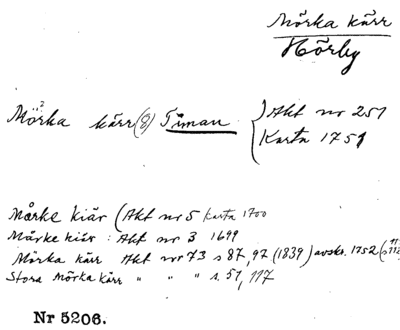 Mörka kärr
Hörby
Mörka kärr (8) Timan } Akt nr 251
Karta 1751
Mårke kiär (Akt nr 5 Karta 1700
Mårke kiär : Akt nr 3 1699
Mörka kärr Akt nr 73 s 87, 97 (1839) avskr. 1752 (s
Stora Mörka kärr " " " s. 51, 117
Nr 5206.